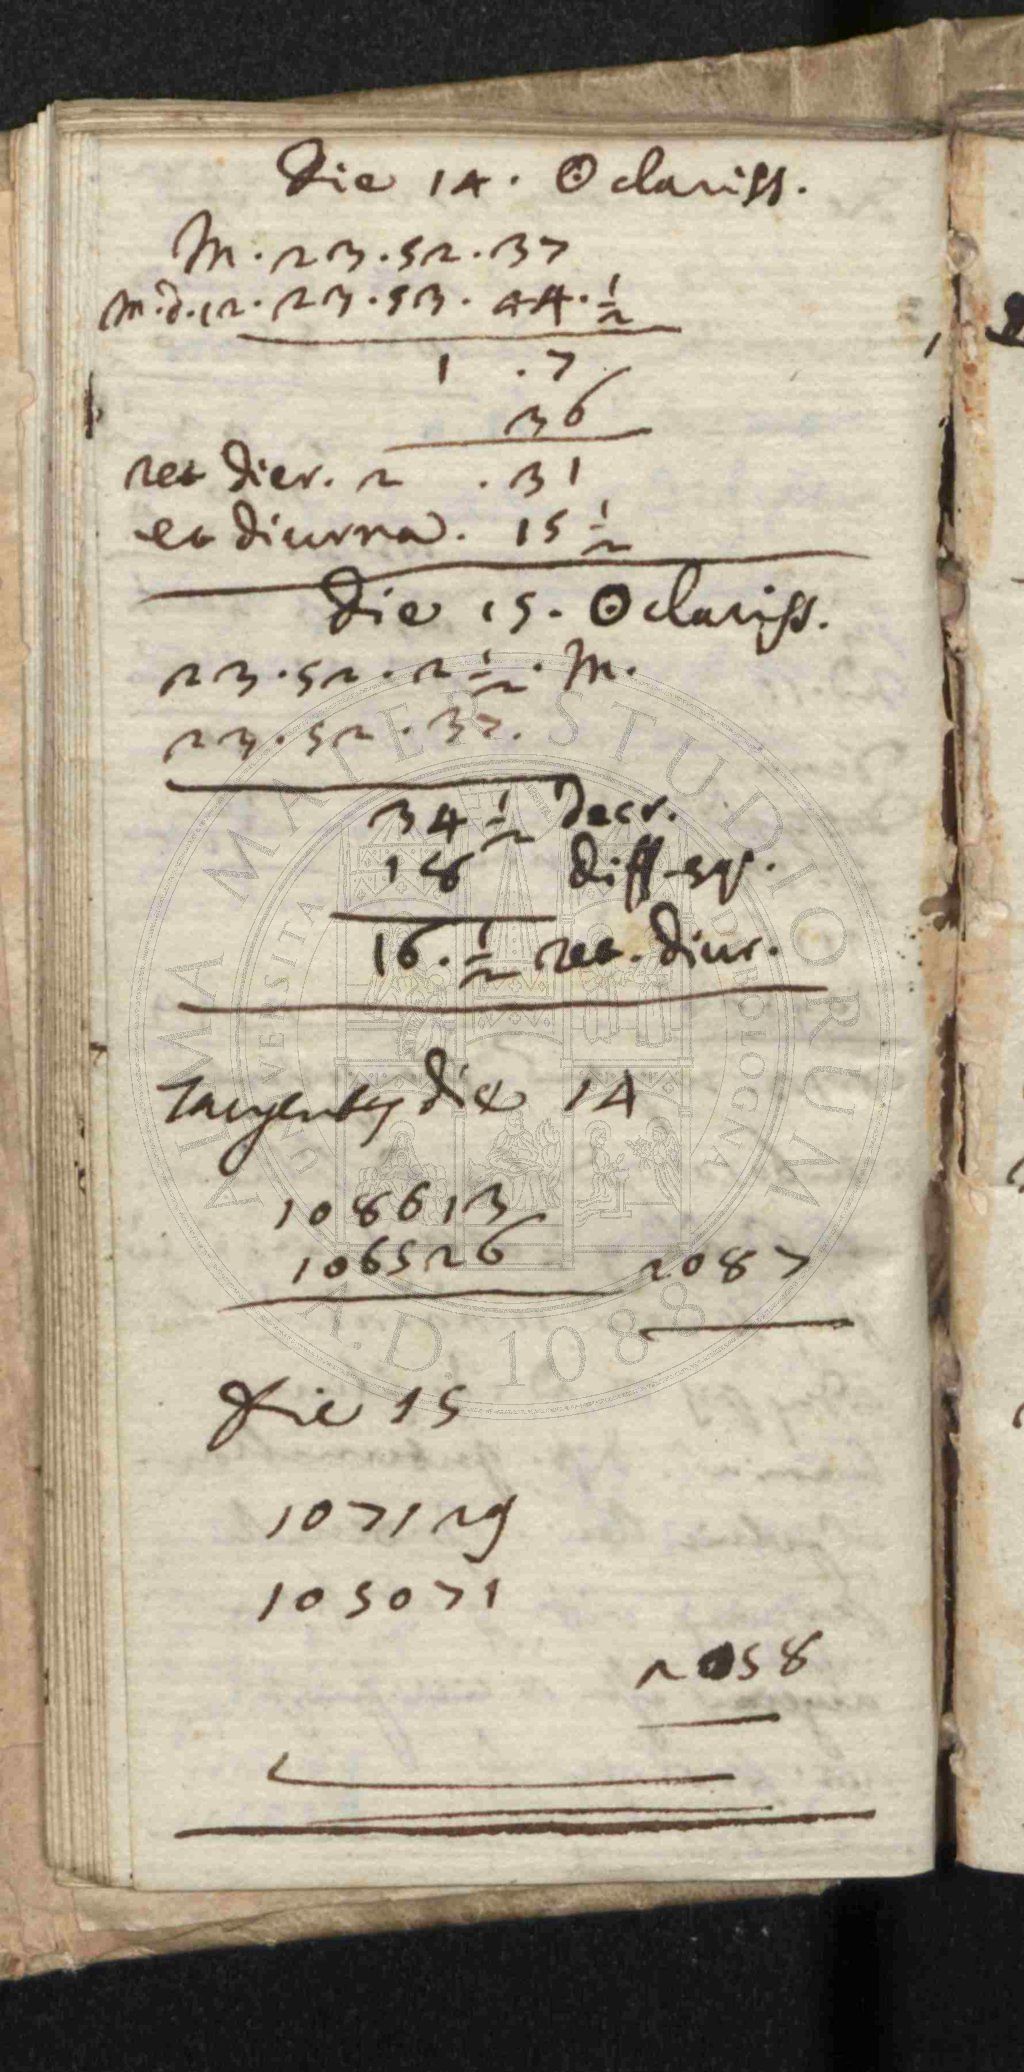 Die 14. ☉ clariss.
M. 23. 52. 37
M. d. 12. 23. 53. 44. ½
1 . 7
36
ret dier. 2 . 31
et diurna. 15 ½
Die 15. ☉ clariss.
23. 52. 2 ½. M.
23. 52. 37.
34 ½ decr.
18 diff. eq.
16. ½ ret. diur.
Tangentes die 14
108613
106526 2087
Die 15
107129
105071
2058
ALMA MATER STUDIORUM
UNIVERSITÀ DI BOLOGNA
A.D. 1088